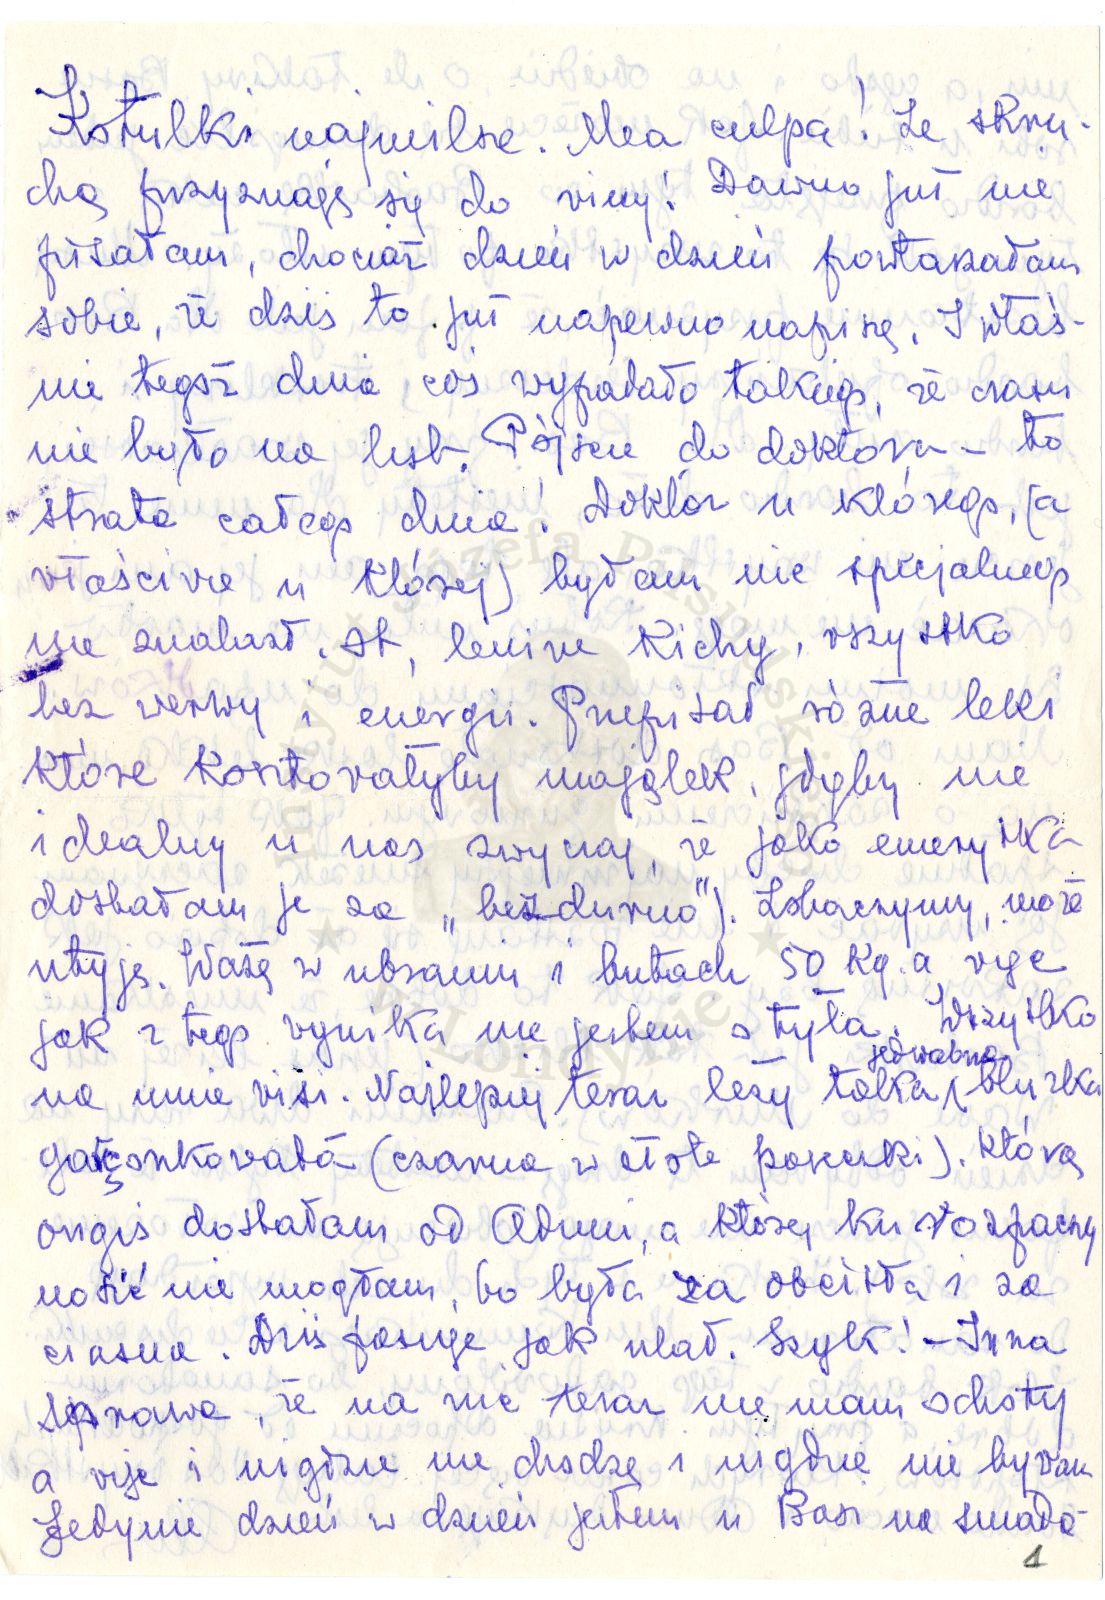 Kotulki najmilsze. Mea culpa! Ze skru-
chą przyznaję się do winy! Dawno już nie
pisałam, chociaż dzień w dzień powtarzałam
sobie, że dziś to już napewno napiszę. I właś-
nie tegoż dnia coś wypadało takiego, że czasu
nie było na list. Pójście do doktora – to
strata całego dnia! Doktór u którego, (a
właściwie u której) byłam nic specjalnego
nie znalazł. Ot, kichy, wszystko
bez werwy i energii. Przepisał różne leki
które kosztowałyby majątek, gdyby nie
idealny u nas zwyczaj, że jako emerytka
dostałam je za "bezdurno"). Zobaczymy, może
utyję. Ważę w ubraniu i butach 50 kg. a więc
jak z tego wynika nie jestem otyła. Wszystko
na mnie wisi. Najlepiej teraz leży taka jedwabna bluzka
garsonkowata (czarna w złote paseczki). którą
ongiś dostałam od Aduni, a której ku rozpaczy
nosić nie mogłam, bo była za obcisła i za
ciasna. Dziś pasuje jak ulał. Szyk! – Inna
sprawa, że na nic teraz nie mam ochoty
a więc i nigdzie nie chodzę i nigdzie nie bywam
Jedynie dzień w dzień jestem u Basi na śniada-
1
Instytut Józefa Piłsudskiego
w Londynie